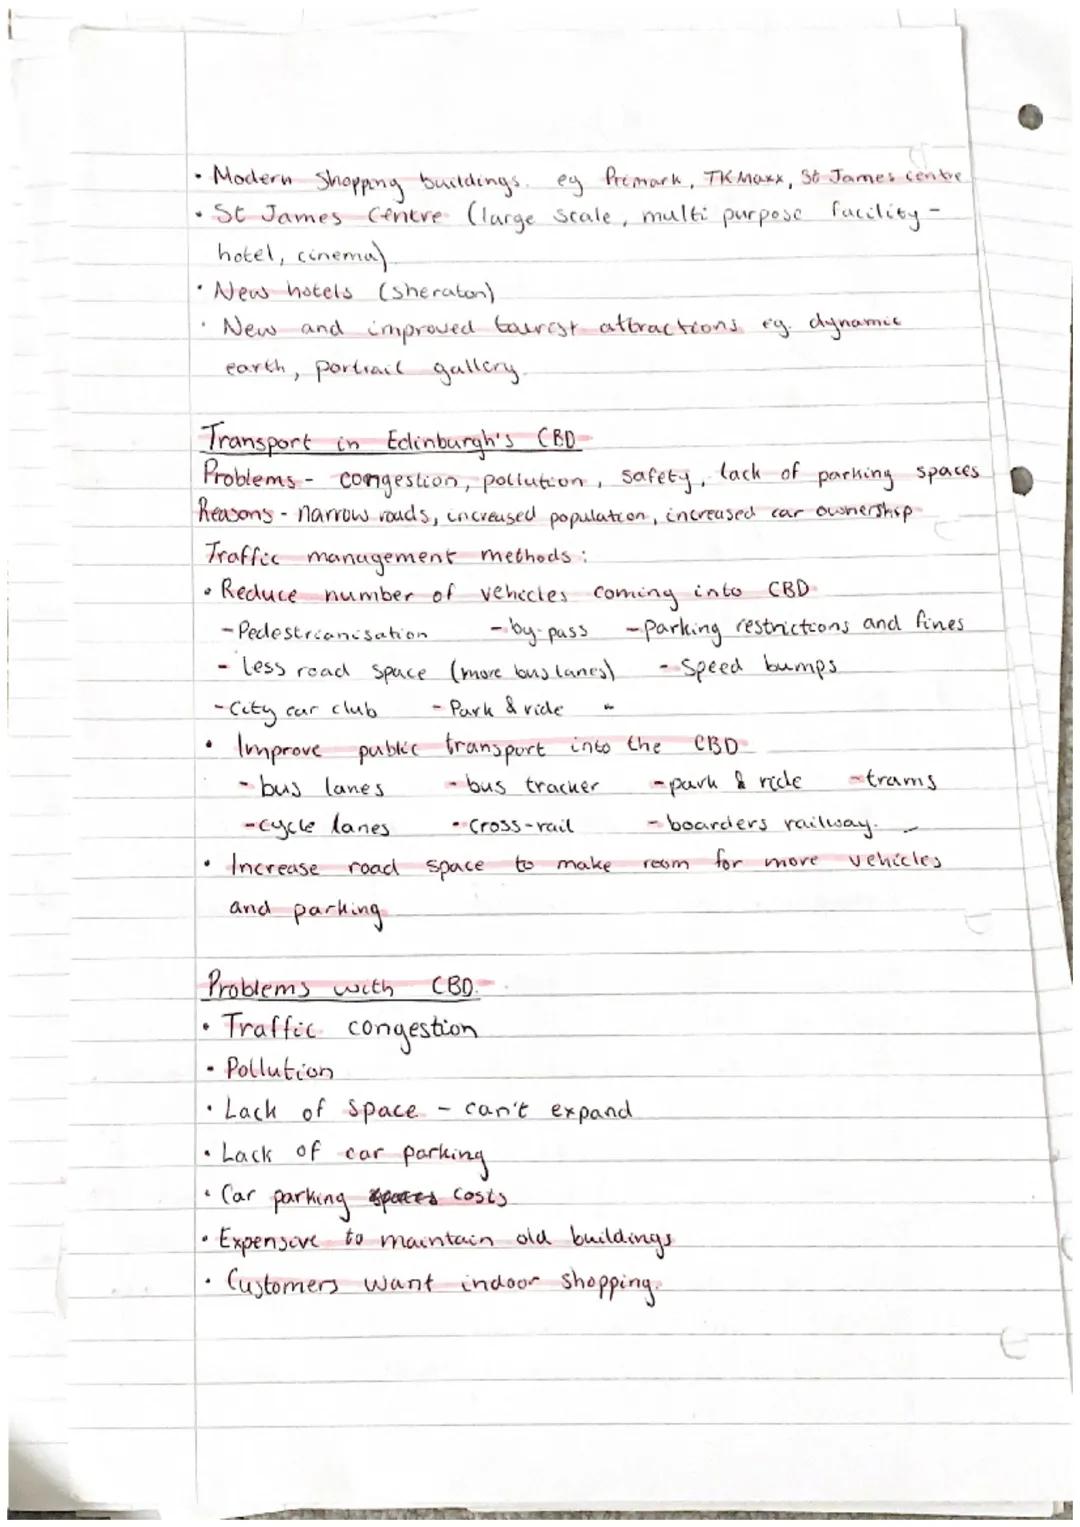 • Modern Shopping buildings. eg Primark, TK Maxx, St James centre
• St James Centre (large scale, multi purpose facility -
hotel, cinema)
• New hotels (Sheraton)
• New and improved tourist attractions eg. dynamic
earth, portrait gallery.
Transport in Edinburgh's CBD
Problems - congestion, pollution, safety, lack of parking spaces
Reasons - narrow roads, increased population, increased car ownership
Traffic management methods:
• Reduce number of vehicles coming into CBD
- Pedestrianisation - by-pass - parking restrictions and fines
- less road space (more bus lanes) - Speed bumps
- City car club - Park & ride
• Improve public transport into the CBD
- bus lanes - bus tracker - park & ride - trams
- cycle lanes - cross-rail - boarders railway.
• Increase road space to make room for more vehicles
and parking
Problems with CBD.
• Traffic congestion
• Pollution
• Lack of space - can't expand
• Lack of car parking
• Car parking spaces costs
• Expensive to maintain old buildings
• Customers want indoor shopping.